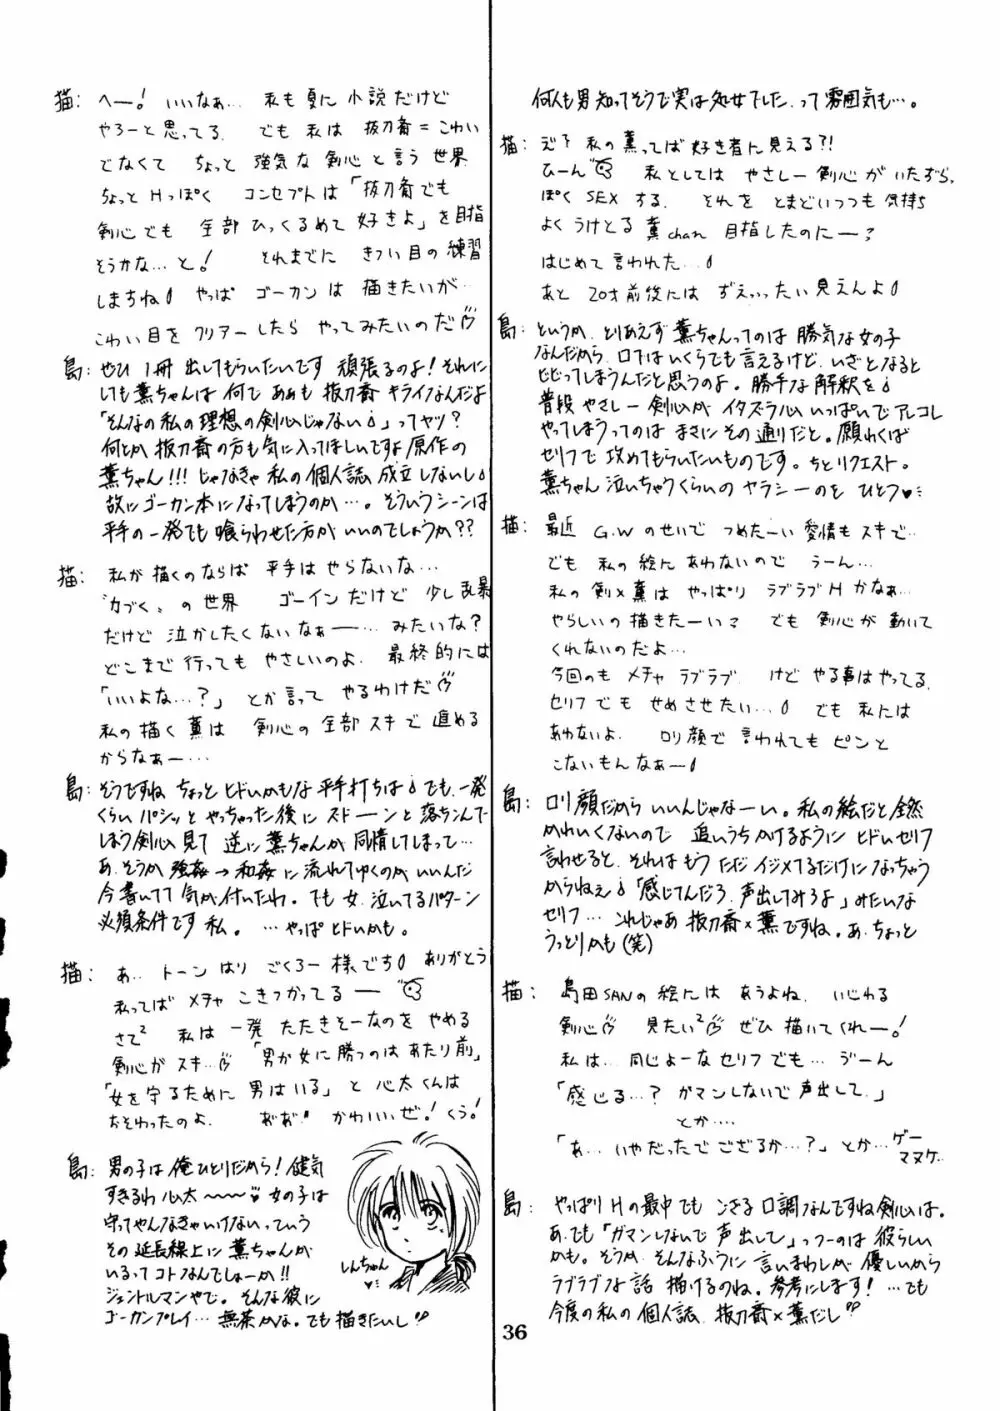 猫: へー！いいなぁ… 私も夏に小説だけど
やろーと思ってる. でも私は 抜刀斎=こわい
でなくて ちょっと 強気な 剣心と言う 世界
ちょっと Hっぽく コンセプトは「抜刀斎でも
剣心でも 全部 ひっくるめて 好きよ」を目指
そうかな…と！ それまでに きつい目の練習
しまちね やっぱ ゴーカンは 描きたいが…
こわい目をクリアーしたら やってみたいのだ
島: ぜひ 1冊 出してもらいたいです 頑張るのよ！それに
しても薫ちゃんは 何で ああも 抜刀斎 キライなんだよ
「そんなの私の理想の剣心じゃない」ってヤツ？
何とか 抜刀斎の方も気に入ってほしいですよ 原作の
薫ちゃん!!! じゃなきゃ 私の個人誌 成立しないし
故にゴーカン本になってしまうのか…。そういうシーンは
平手の一発でも 喰らわせた方が いいのでしょうか??
猫: 私が描くのならば 平手は やらないな…
"力づく"の世界 ゴーインだけど 少し乱暴
だけど 泣かしたくないなぁー… みたいな?
どこまで行っても やさしいのよ. 最終的には
「いいよな…?」とか言って やるわけだ
私の描く 薫は 剣心の全部スキで 進める
からなぁー…
島: そうですね ちょっと ヒドいかもな 平手打ちは でも、一発
くらい パシッと やっちゃった後に ストーンと 落ちこんで
しまう剣心見て 逆に薫ちゃんが 同情してしまって…
あ、そうか 強姦→和姦に 流れてゆくのか いいんだ
今書いてて 気が付いたわ。でも女、泣いてるパターン
必須条件です 私。…やっぱ ヒドいかも。
猫: あ… トーンはり ごくろー様です ありがとう
私ってば メチャ こきつかってる ー
さて² 私は 一発 たたきそーなのを やめる
剣心が スキ…「男が女に勝つのは あたり前」
「女を守るために 男はいる」と 心太くんは
おそわったのよ. おぉおぉ かわいいぜ！くう！
島: 男の子は 俺ひとりだから！健気
すぎるわ 心太〜〜〜 女の子は
守ってやんなきゃいけないっていう
その 延長線上に 薫ちゃんが
いるってコトなんでしょーか!!
ジェントルマンやで。そんな彼に
ゴーカンプレイ… 無茶かな。でも描きたいし
しんちゃん
何人も男知ってそうで実は処女でした、って雰囲気も…。
猫: えっ 私の薫ってば 好き者に見える?!
ひーん 私としては やさしー剣心が いたずら
ぽく SEXする. それを とまどいつつも 気持ち
よく うけとる 薫chan 目指したのにー?
はじめて 言われた…
あと 20才前後には ずぇっったい見えんよ
島: というか、とりあえず 薫ちゃんってのは 勝気な女の子
なんだから、口ではいくらでも言えるけど、いざとなると
ビビってしまうんだと思うのよ。勝手な解釈を
普段やさしー剣心が イタズラ心いっぱいで アレコレ
やってしまうってのは まさに その通りだと。願わくば
セリフで 攻めてもらいたいものです。ちとリクエスト。
薫ちゃん 泣いちゃうくらいの ヤラシーのを ひとつ
猫: 最近 G.Wのせいで つめたーい 愛情もスキで…
でも 私の絵に あわないので うーん…
私の 剣×薫は やっぱり ラブラブHかなぁ…
やらしいの描きたーい? でも 剣心が 動いて
くれないのだよ…
今回のも メチャ ラブラブ. けど やる事はやってる.
セリフでも せめさせたい… でも 私には
あわないよ. ロリ顔で 言われても ピンと
こないもんなぁー
島: ロリ顔だから いいんじゃなーい。私の絵だと全然
かわいくないので 追いうちかけるように ヒドいセリフ
言わせると、それはもう ただ イジメてるだけに なっちゃう
からねぇ「感じてんだろ、声出してみろよ」みたいな
セリフ… これじゃあ 抜刀斎×薫ですね。あ、ちょっと
うっとりかも(笑)
猫: 島田SANの絵には あうよね. いじわる
剣心 見たい² ぜひ 描いてくれー！
私は… 同じよーなセリフでも… うーん
「感じる…? ガマンしないで 声出して.」
とか…
「あ… いやだったでござるか…?」とか… ゲー
マヌケ…
島: やっぱり Hの最中でも ござる口調なんですね 剣心は。
あ、でも「ガマンしないで 声出して」っつーのは 彼らしい
かも。そうか、そんなふうに 言いまわしが 優しいから
ラブラブな話 描けるのね。参考にします！…でも
今度の私の個人誌、抜刀斎×薫だし
36